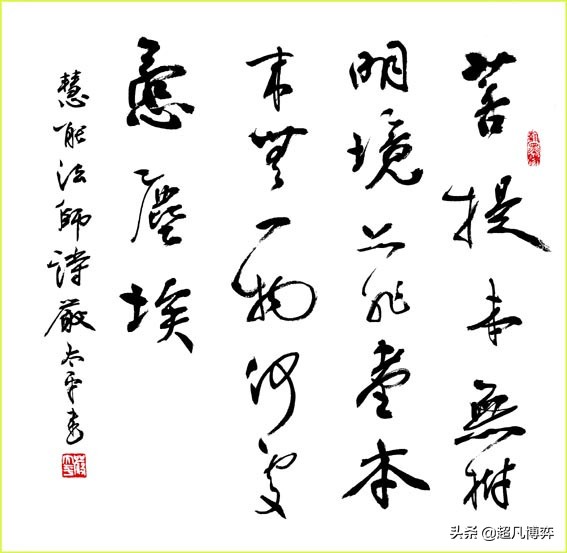 菩提本無樹
明境亦非臺本
来無一物何處
惹塵埃
慧能法師詩嚴太平書
头条 @超凡博弈